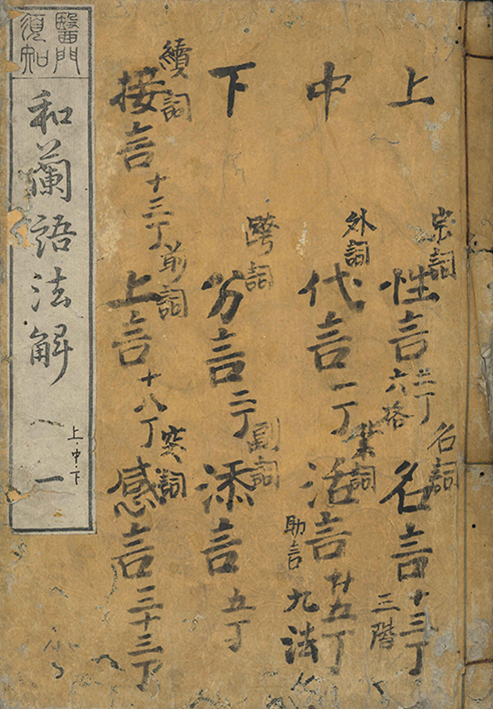 上
宗詞
性言 二丁
六格
名詞
名言 十三丁
三階
中
外詞
代言 一丁
業詞
活言 廿五丁
助言 九法
下
跨詞
分言 二丁
副詞
添言 五丁
續詞
接言 十三丁
前詞
上言 十八丁
突詞
感言 三十三丁
醫門
須知
和蘭語法解
上・中・下
一